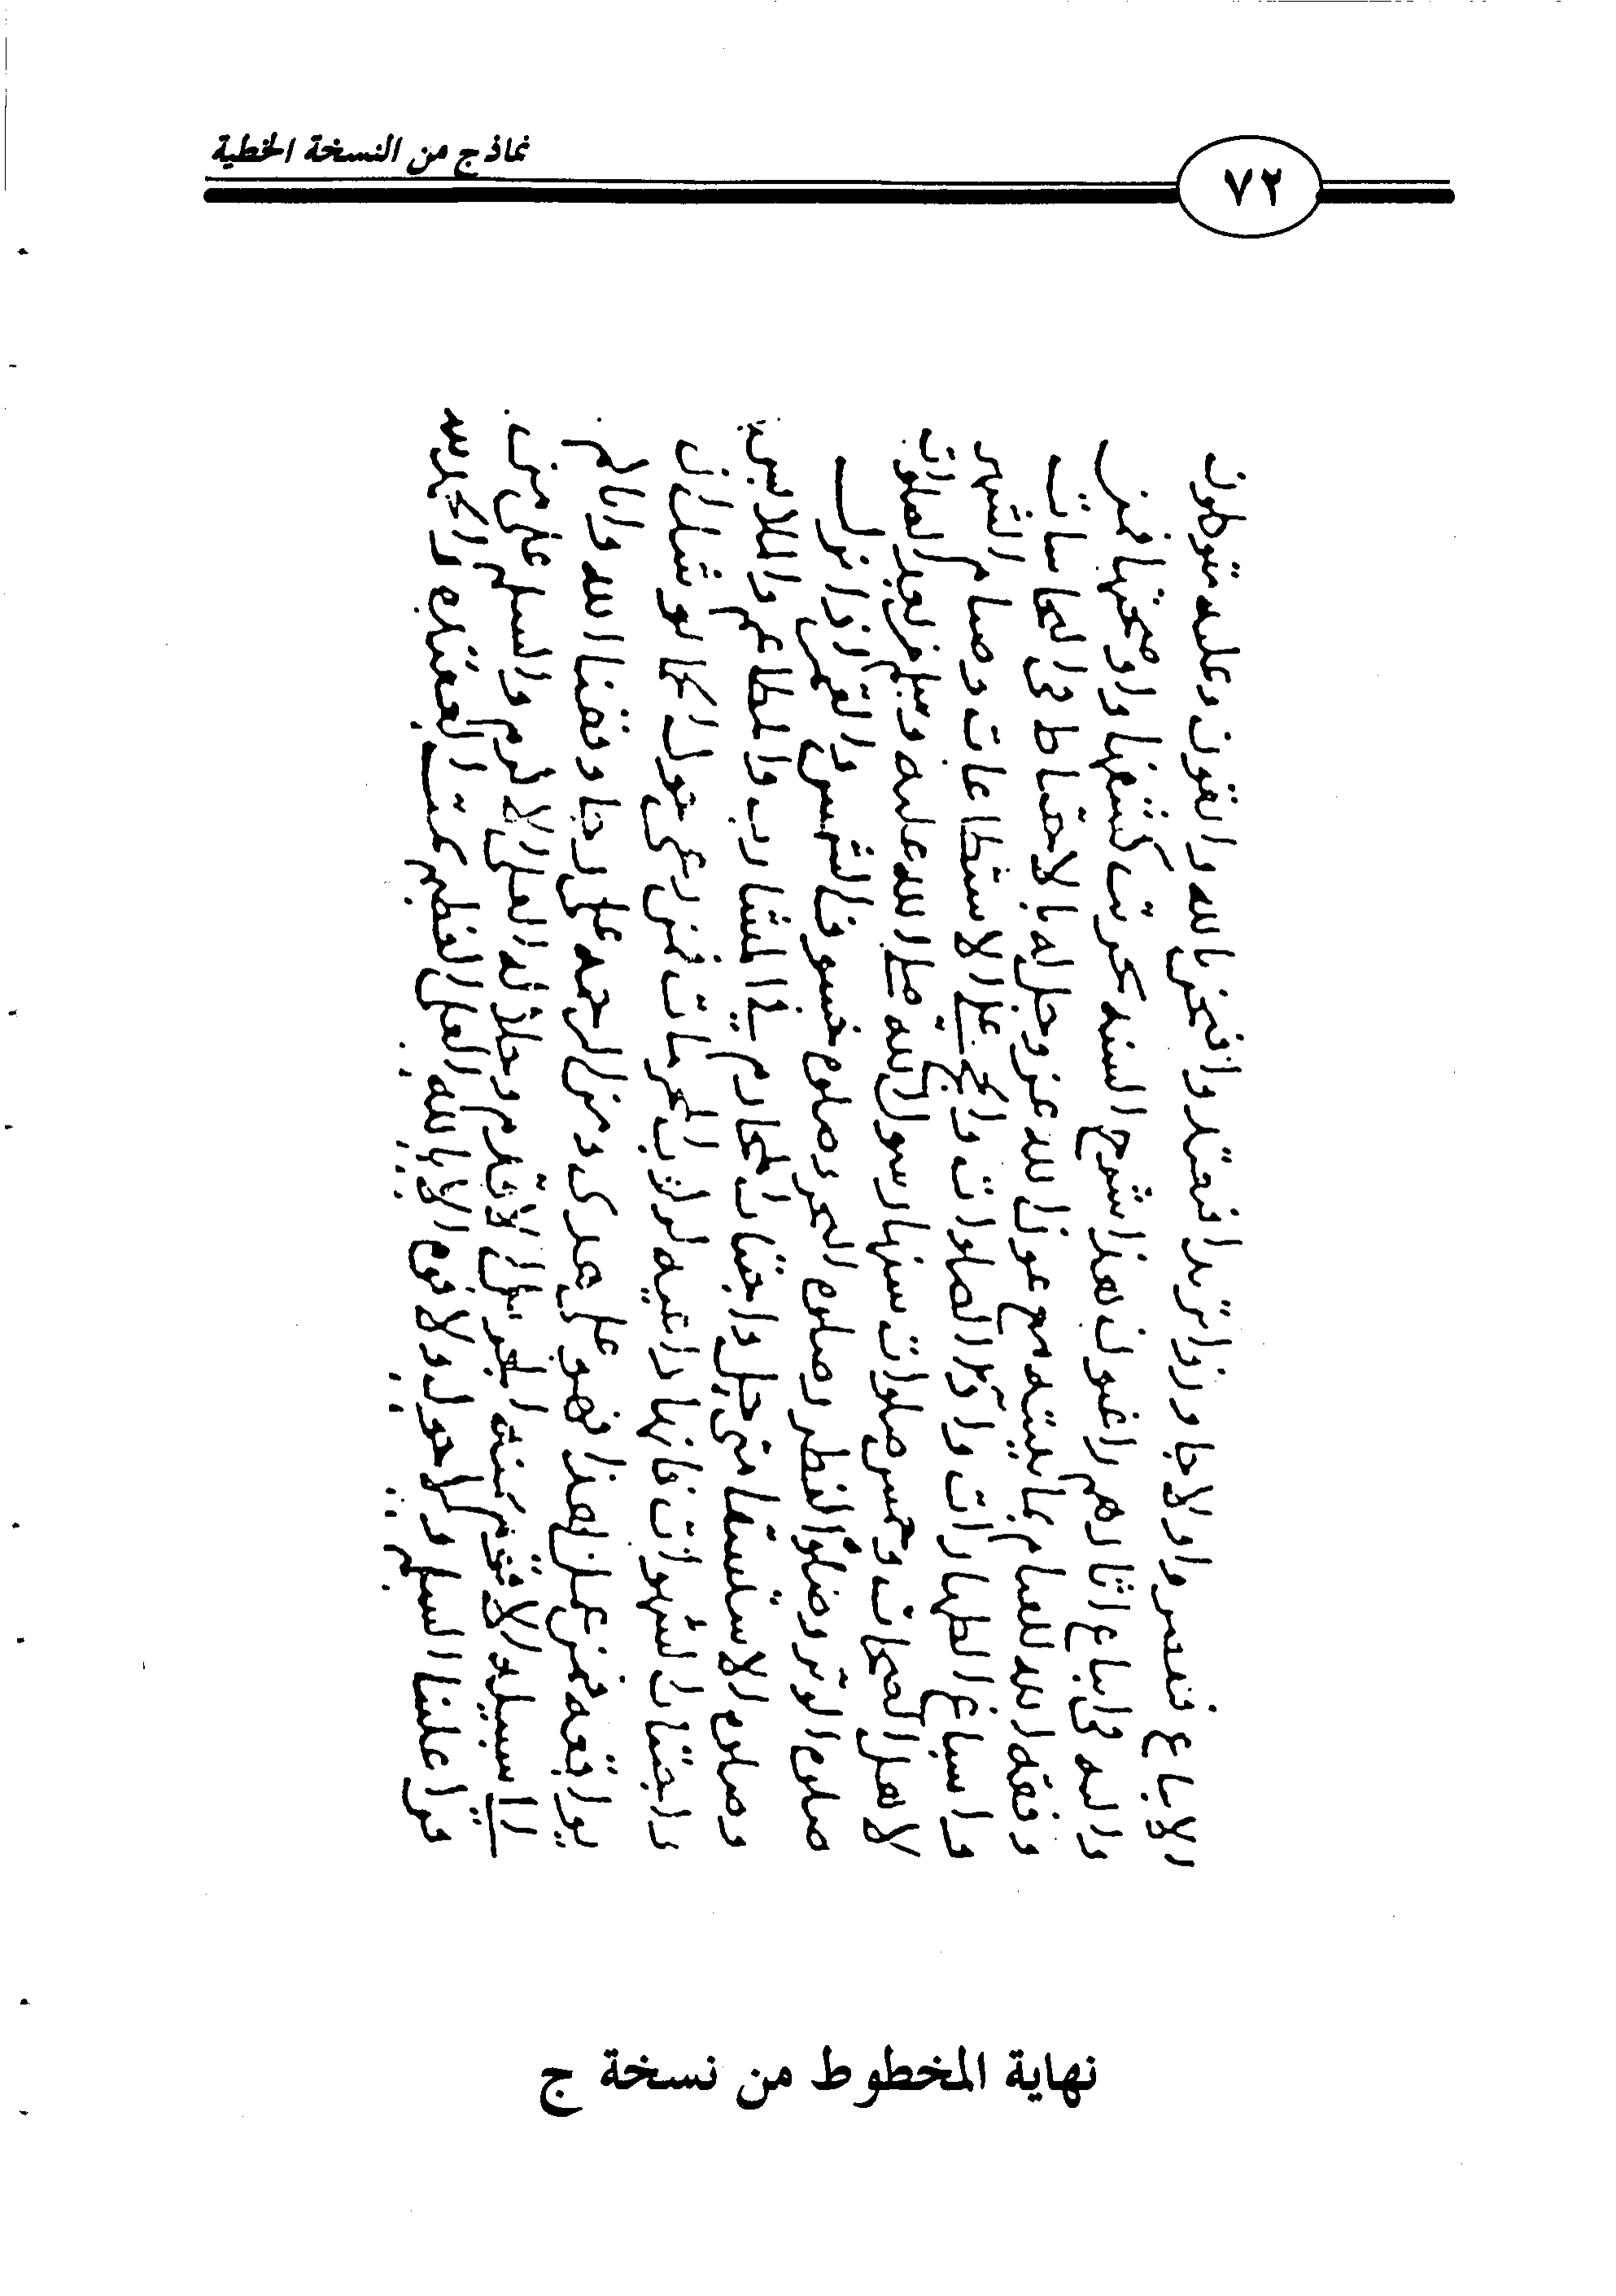 نماذج من النسخة الخطية
٧٢
الاتباع فنصروا ولا جاوزوا تزيدا فيعتدوا فنحن بالله واثقون وعليه متوكلون
واليه في اتباع اثارهم راغبون فهذا شرح السنة تحريت كشفها واوضحتها فمن
وفقه الله للقيام بما بينته مع عون الله عز وجل له بالاحتياط في النجاسات
واسباغ الطهارات وادا الصلوات والحج على الاستطاعات وصيام الشهر
لاهل الصحات وخمس صلوات سنها رسول الله صلى الله عليه
صلوه الوتر وصلوه الفطر وصلوه النحر وصلوه خسوف الشمس والقمر اذا نزل
وصلوه الاستسقا متى واجتناب المحارم
واجتناب الشهوات فانها داعية لركوب المحرمات فمن رعى حول الحما يوشك ان
يواقعه فمن عمل بهذا فهو على هدى ومن الرحمه على رجا وفقنا الله واياكم
الى سبيله الاقوم بمنه الجزيل الاقدم وجلاله العلي الاكرم والسلم على من
قرا علينا السلم ولا حول ولا قوه الا بالله العلي العظيم
نهاية المخطوط من نسخة ج